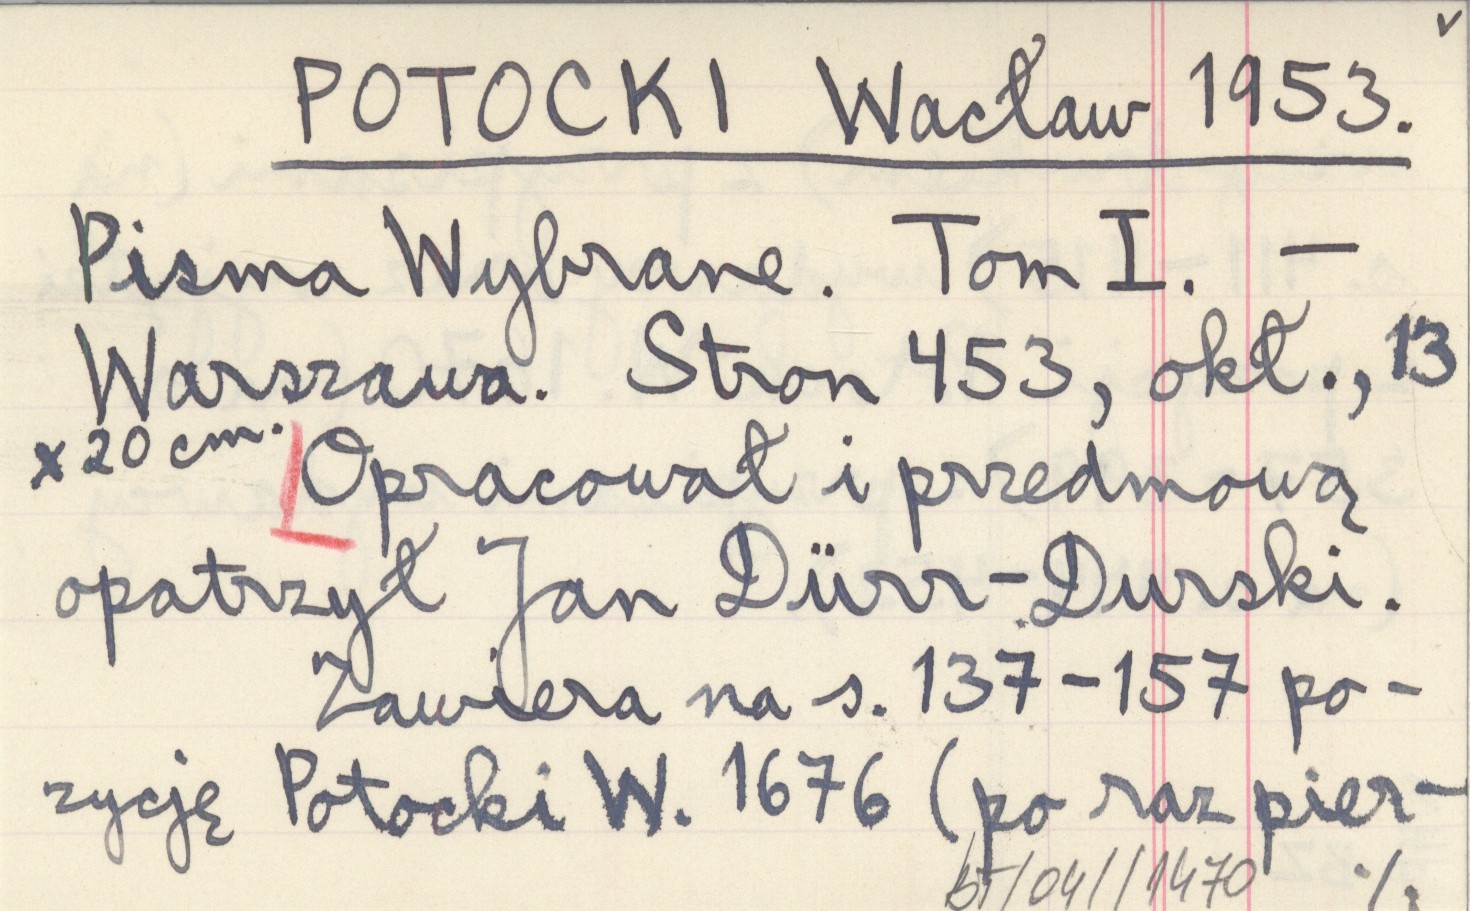 v
POTOCKI Wacław 1953.
Pisma Wybrane. Tom I. —
Warszawa. Stron 453, okł., 13
x 20 cm. Opracował i przedmową
opatrzył Jan Dürr-Durski.
Zawiera na s. 137-157 po-
zycję Potocki W. 1676 (po raz pier-
bt/04//1470 ./.